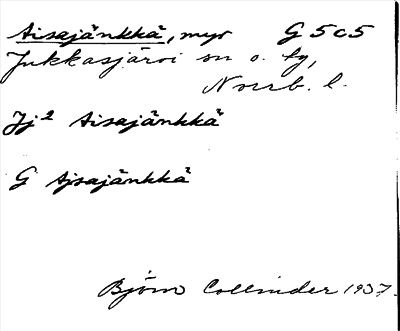 Aisajänkkä, myr G 5 c 5
Jukkasjärvi sn o. kg,
Norrb. l.
Jj² Aisajänkkä
G Ajsajänkkä
Björn Collinder 1937.